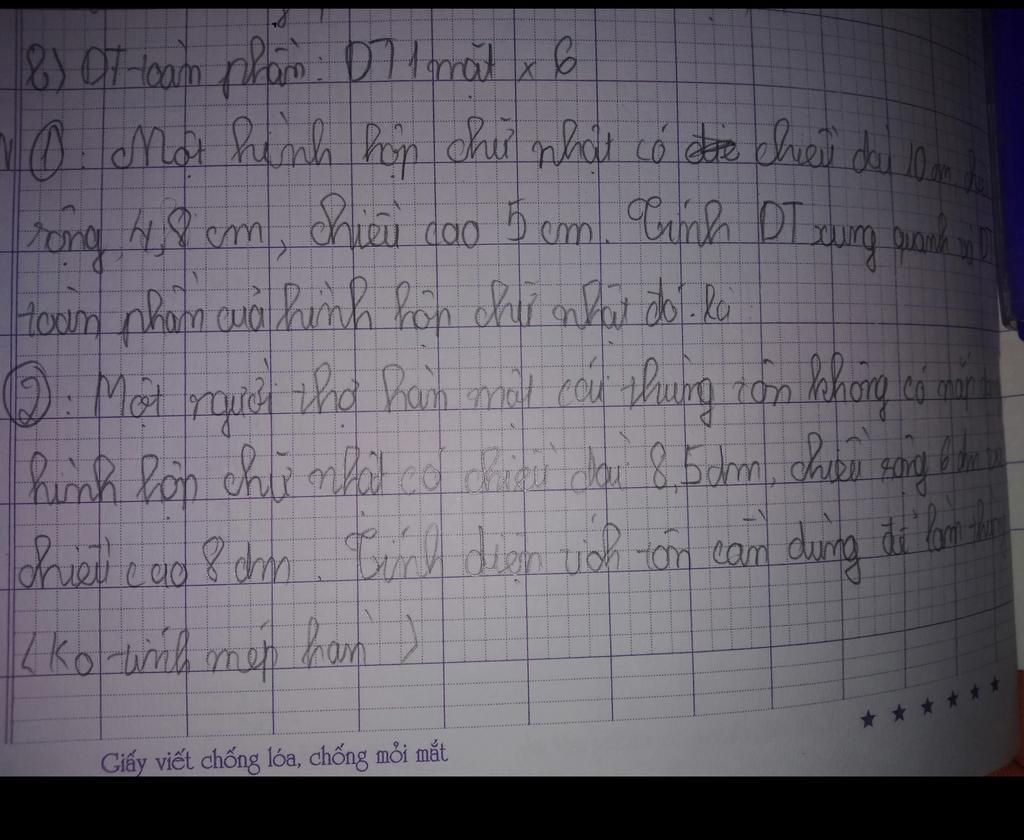 8) DT toàn phần: DT 1 mặt x 6
①. Một hình hộp chữ nhật có chiều dài 10 cm
rộng 4,8 cm, chiều cao 5 cm. Tính DT xung quanh và DT
toàn phần của hình hộp chữ nhật đó.
②: Một người thợ hàn một cái thùng tôn không có nắp
hình hộp chữ nhật có chiều dài 8,5dm, chiều rộng 6 dm
chiều cao 8 dm. Tính diện tích tôn cần dùng để làm
(Ko tính mép hàn)
Giấy viết chống lóa, chống mỏi mắt